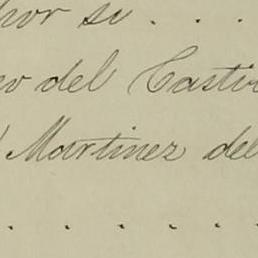 por si . . . .
del Casti
Martinez del
. . . . . .